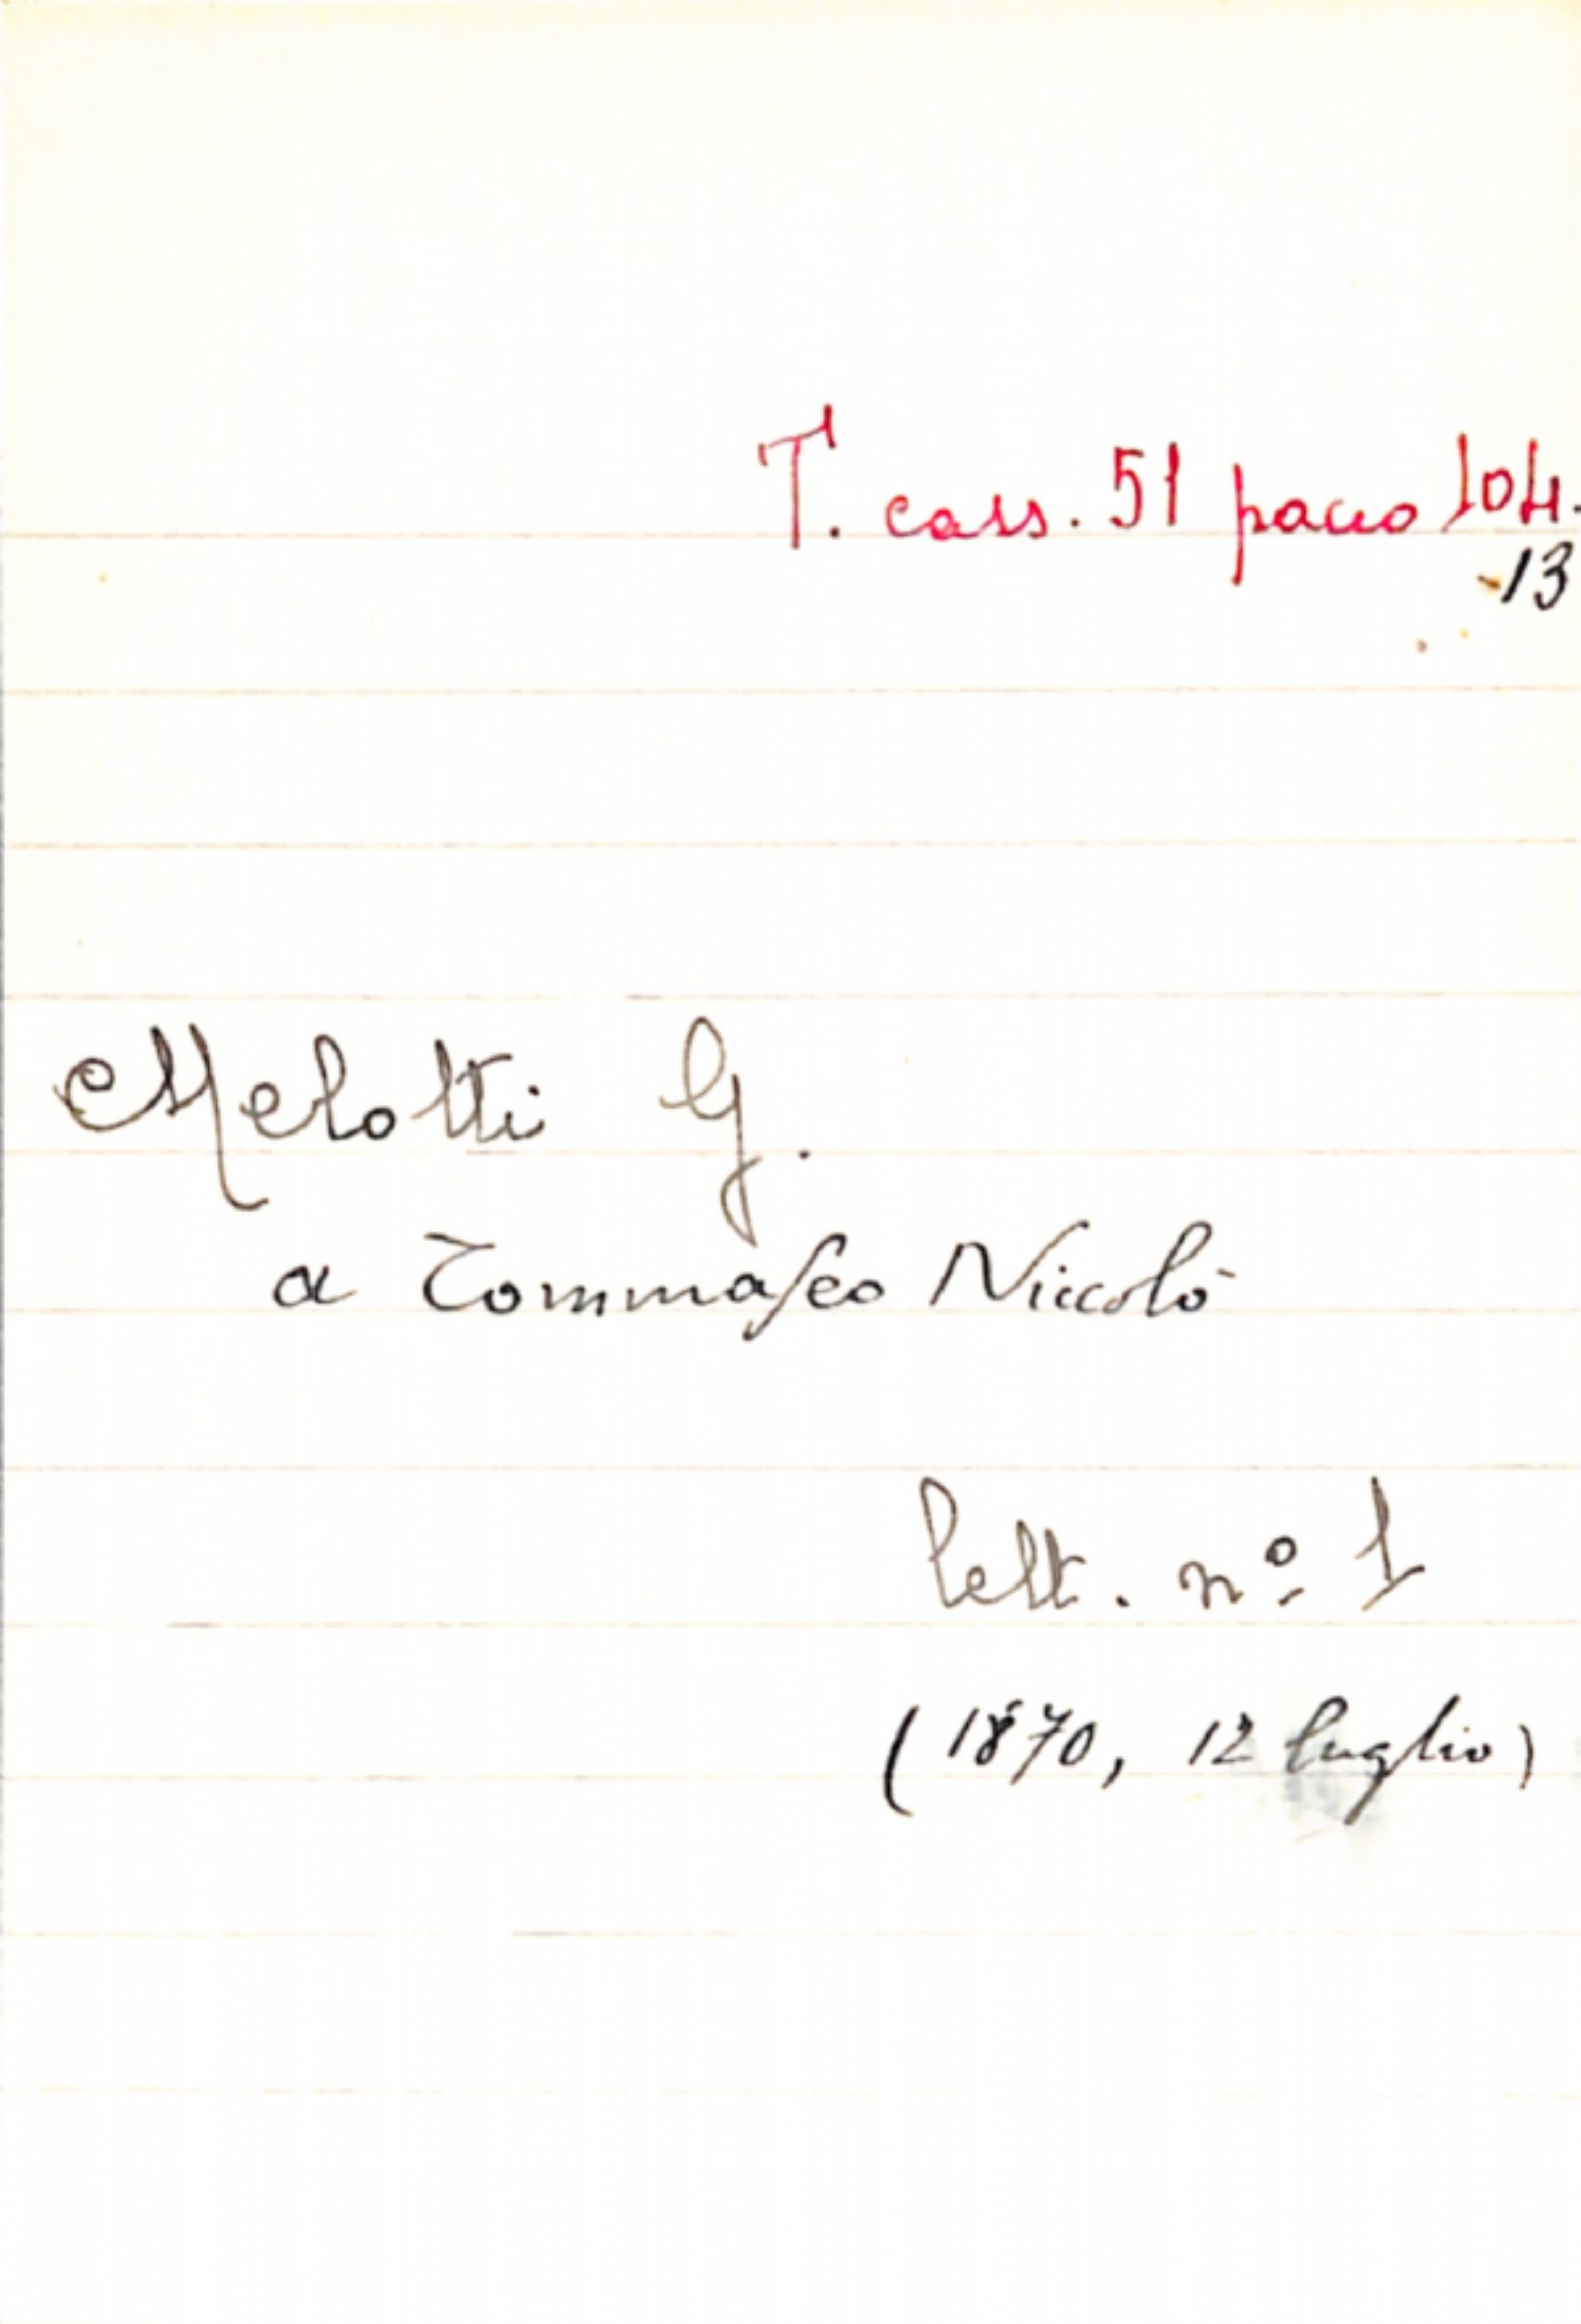 T. cass. 51 pacco 104.
-13
Melotti G.
a Tommaseo Niccolò
lett. nº 1
(1870, 12 luglio)